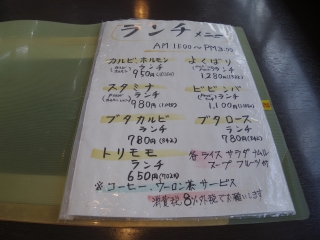 ランチメニュー
AM 11:00 ~ PM 3:00
カルビ、ホルモン
ランチ
950円
よくばり
ランチ
1280円
スタミナ
ランチ
980円
ビビンバ
ランチ
1,100円
ブタカルビ
ランチ
780円(842)
ブタロース
ランチ
780円(842)
トリモモ
ランチ
650円(702)
各ライス サラダ
スープ フルーツ付
※コーヒー、ウーロン茶 サービス
消費税8%外税でお願いします